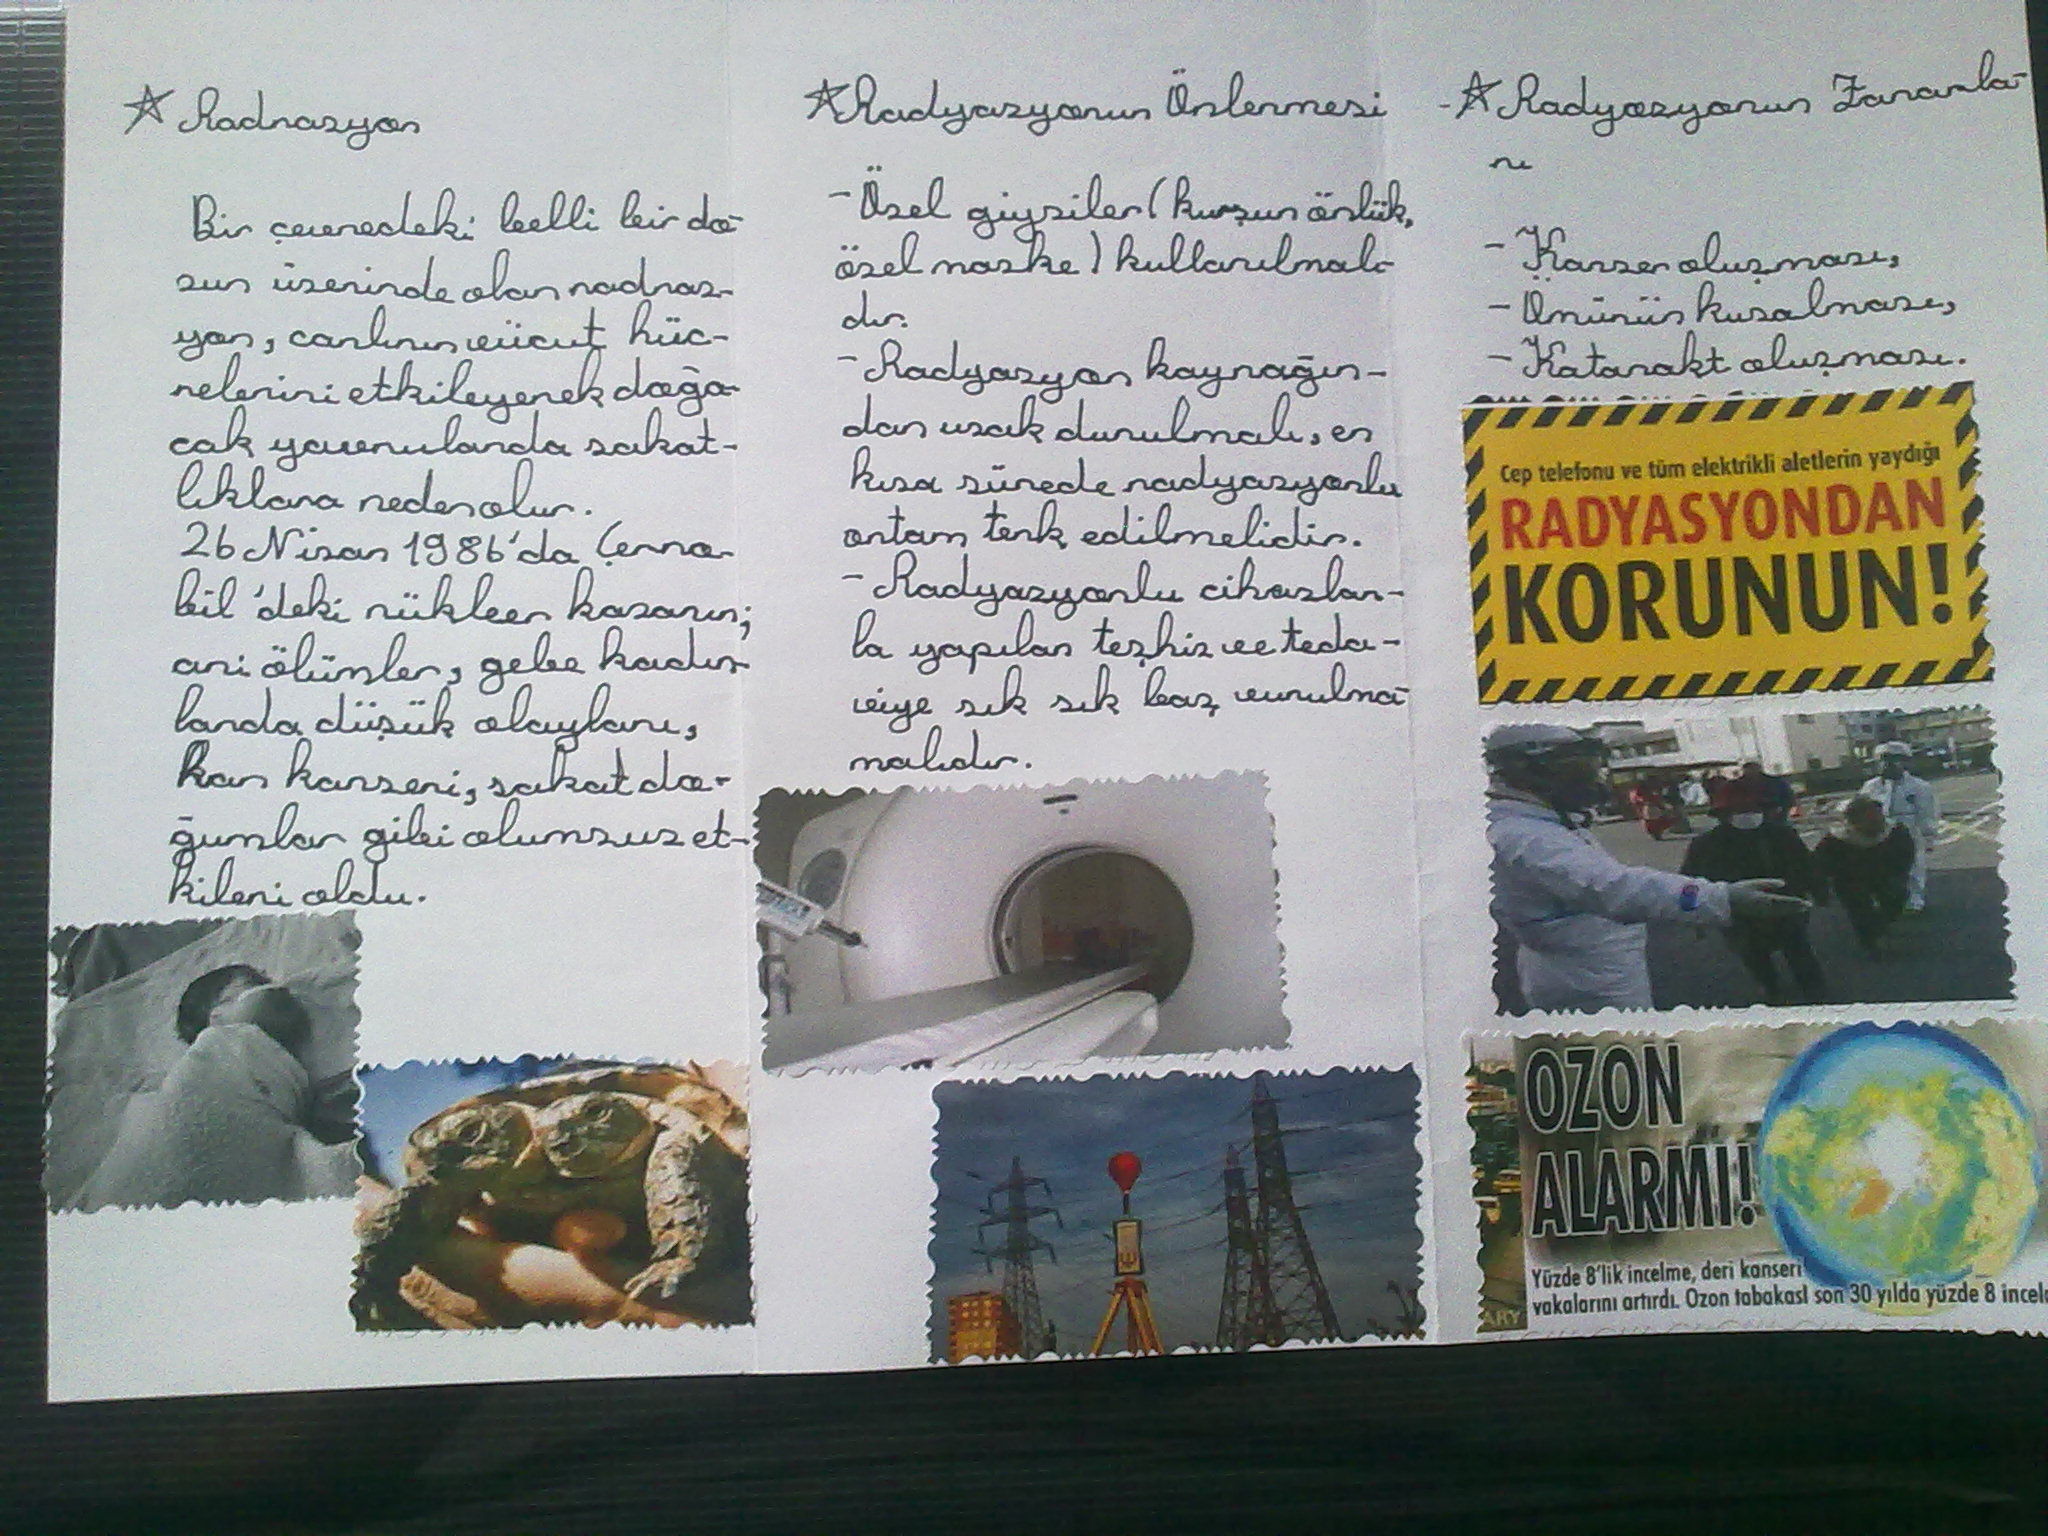 ☆ Radrasyon
Bir çevredeki belli bir do-
zun üzerinde olan radras-
yon, canlının vücut hüc-
relerini etkileyerek doğa-
cak yavrularda sakat-
lıklara neden olur.
26 Nisan 1986'da Çerno-
bil'deki nükleer kazanın;
ani ölümler, gebe kadın-
larda düşük olayları,
kan kanseri, sakat do-
ğumlar gibi olumsuz et-
kileri oldu.
☆ Radyasyonun Önlenmesi
- Özel giysiler (kurşun önlük,
özel maske) kullanılmalı-
dır.
- Radyasyon kaynağın-
dan uzak durulmalı, en
kısa sürede radyasyonlu
ortam terk edilmelidir.
- Radyasyonlu cihazlar-
la yapılan teşhis ve teda-
viye sık sık baş vurulma-
malıdır.
- ☆ Radyasyonun Zararla-
rı
- Kanser oluşması,
- Ömürün kısalması,
- Katarakt oluşması.
Cep telefonu ve tüm elektrikli aletlerin yaydığı
RADYASYONDAN
KORUNUN!
OZON
ALARMI!
Yüzde 8'lik incelme, deri kanseri
vakalarını artırdı. Ozon tabakası son 30 yılda yüzde 8 incel
ARY